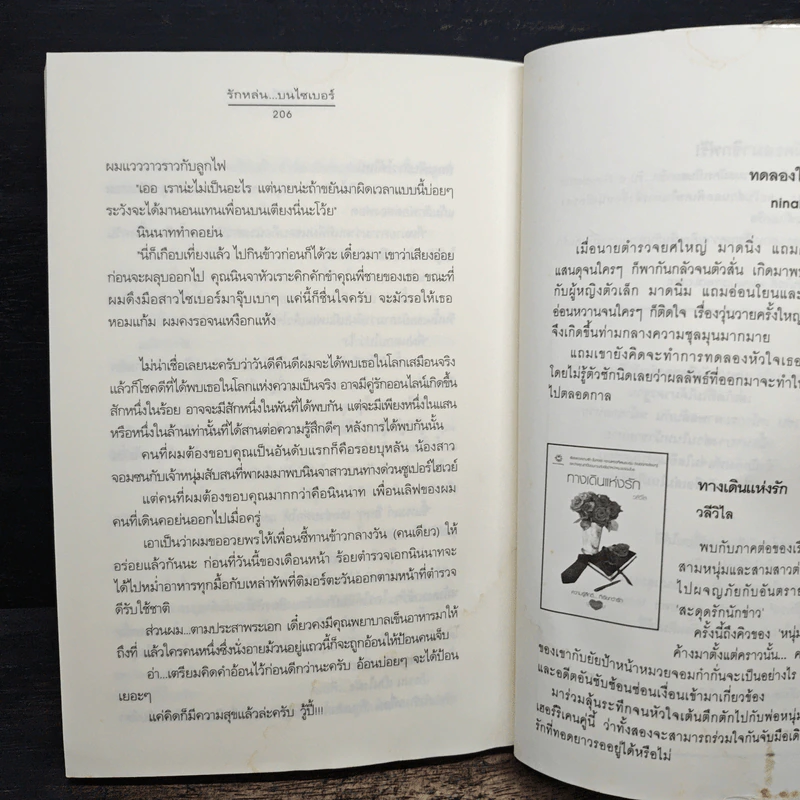 รักหล่น...บนไซเบอร์
206
ผมแวววาวราวกับลูกไฟ
"เออ เราน่ะไม่เป็นอะไร แต่นายน่ะถ้าขยันมาผิดเวลาแบบนี้บ่อยๆ
ระวังจะได้มานอนแทนเพื่อนบนเตียงนี่นะโว้ย"
นินนาททำคอย่น
"นี่ก็เกือบเที่ยงแล้ว ไปกินข้าวก่อนก็ได้วะ เดี๋ยวมา" เขาว่าเสียงอ่อย
ก่อนจะผลุบออกไป คุณนินจาหัวเราะคิกคักขำคุณพี่ชายของเธอ ขณะที่
ผมดึงมือสาวไซเบอร์มาจุ๊บเบาๆ แค่นี้ก็ชื่นใจครับ จะมัวรอให้เธอ
หอมแก้ม ผมคงรอจนเหงือกแห้ง
ไม่น่าเชื่อเลยนะครับว่าวันดีคืนดีผมจะได้พบเธอในโลกเสมือนจริง
แล้วก็โชคดีที่ได้พบเธอในโลกแห่งความเป็นจริง อาจมีคู่รักออนไลน์เกิดขึ้น
สักหนึ่งในร้อย อาจจะมีสักหนึ่งในพันที่ได้พบกัน แต่จะมีเพียงหนึ่งในแสน
หรือหนึ่งในล้านเท่านั้นที่ได้สานต่อความรู้สึกดีๆ หลังการได้พบกันนั้น
คนที่ผมต้องขอบคุณเป็นอันดับแรกก็คือรอยบุหลัน น้องสาว
จอมซนกับเจ้าหนุ่มสับสนที่พาผมมาพบนินจาสาวบนทางด่วนซูเปอร์ไฮเวย์
แต่คนที่ผมต้องขอบคุณมากกว่าคือนินนาท เพื่อนเลิฟของผม
คนที่เดินคอย่นออกไปเมื่อครู่
เอาเป็นว่าผมขออวยพรให้เพื่อนซี้ทานข้าวกลางวัน (คนเดียว) ให้
อร่อยแล้วกันนะ ก่อนที่วันนี้ของเดือนหน้า ร้อยตำรวจเอกนินนาทจะ
ได้ไปหม่ำอาหารทุกมื้อกับเหล่าทัพที่ติมอร์ตะวันออกตามหน้าที่ตำรวจ
ดีรับใช้ชาติ
ส่วนผม...ตามประสาพระเอก เดี๋ยวคงมีคุณพยาบาลเข็นอาหารมาให้
ถึงที่ แล้วใครคนหนึ่งซึ่งนั่งอายม้วนอยู่แถวนี้ก็จะถูกอ้อนให้ป้อนคนเจ็บ
อ่า...เตรียมคิดคำอ้อนไว้ก่อนดีกว่านะครับ อ้อนบ่อยๆ จะได้ป้อน
เยอะๆ
แค่คิดก็มีความสุขแล้วล่ะครับ วู้ปี้!!!
ทดลองใ
ninar
เมื่อนายตำรวจยศใหญ่ มาดนิ่ง แถม
แสนดุจนใครๆ ก็พากันกลัวจนตัวสั่น เกิดมาพ
กับผู้หญิงตัวเล็ก มาดนิ่ม แถมอ่อนโยนและ
อ่อนหวานจนใครๆ ก็ติดใจ เรื่องวุ่นวายครั้งใหญ่
จึงเกิดขึ้นท่ามกลางความชุลมุนมากมาย
แถมเขายังคิดจะทำการทดลองหัวใจเธอ
โดยไม่รู้ตัวซักนิดเลยว่าผลลัพธ์ที่ออกมาจะทำให้
ไปตลอดกาล
ทางเดินแห่งรัก
ทางเดินแห่งรัก
วลีวิไล
พบกับภาคต่อของเรื่
สามหนุ่มและสามสาวต
ไปผจญภัยกับอันตราย
'สะดุดรักนักข่าว'
ครั้งนี้ถึงคิวของ 'หนุ่
ค้างมาตั้งแต่คราวนั้น...
ของเขากับยัยป้าหน้าหมวยจอมกำกั่นจะเป็นอย่างไร
และอดีตอันซับซ้อนซ่อนเงื่อนเข้ามาเกี่ยวข้อง
มาร่วมลุ้นระทึกจนหัวใจเต้นตึกตักไปกับพ่อหนุ่ม
เฮอร์ริเคนคู่นี้ ว่าทั้งสองจะสามารถร่วมใจกันจับมือเดิ
รักที่ทอดยาวรออยู่ได้หรือไม่